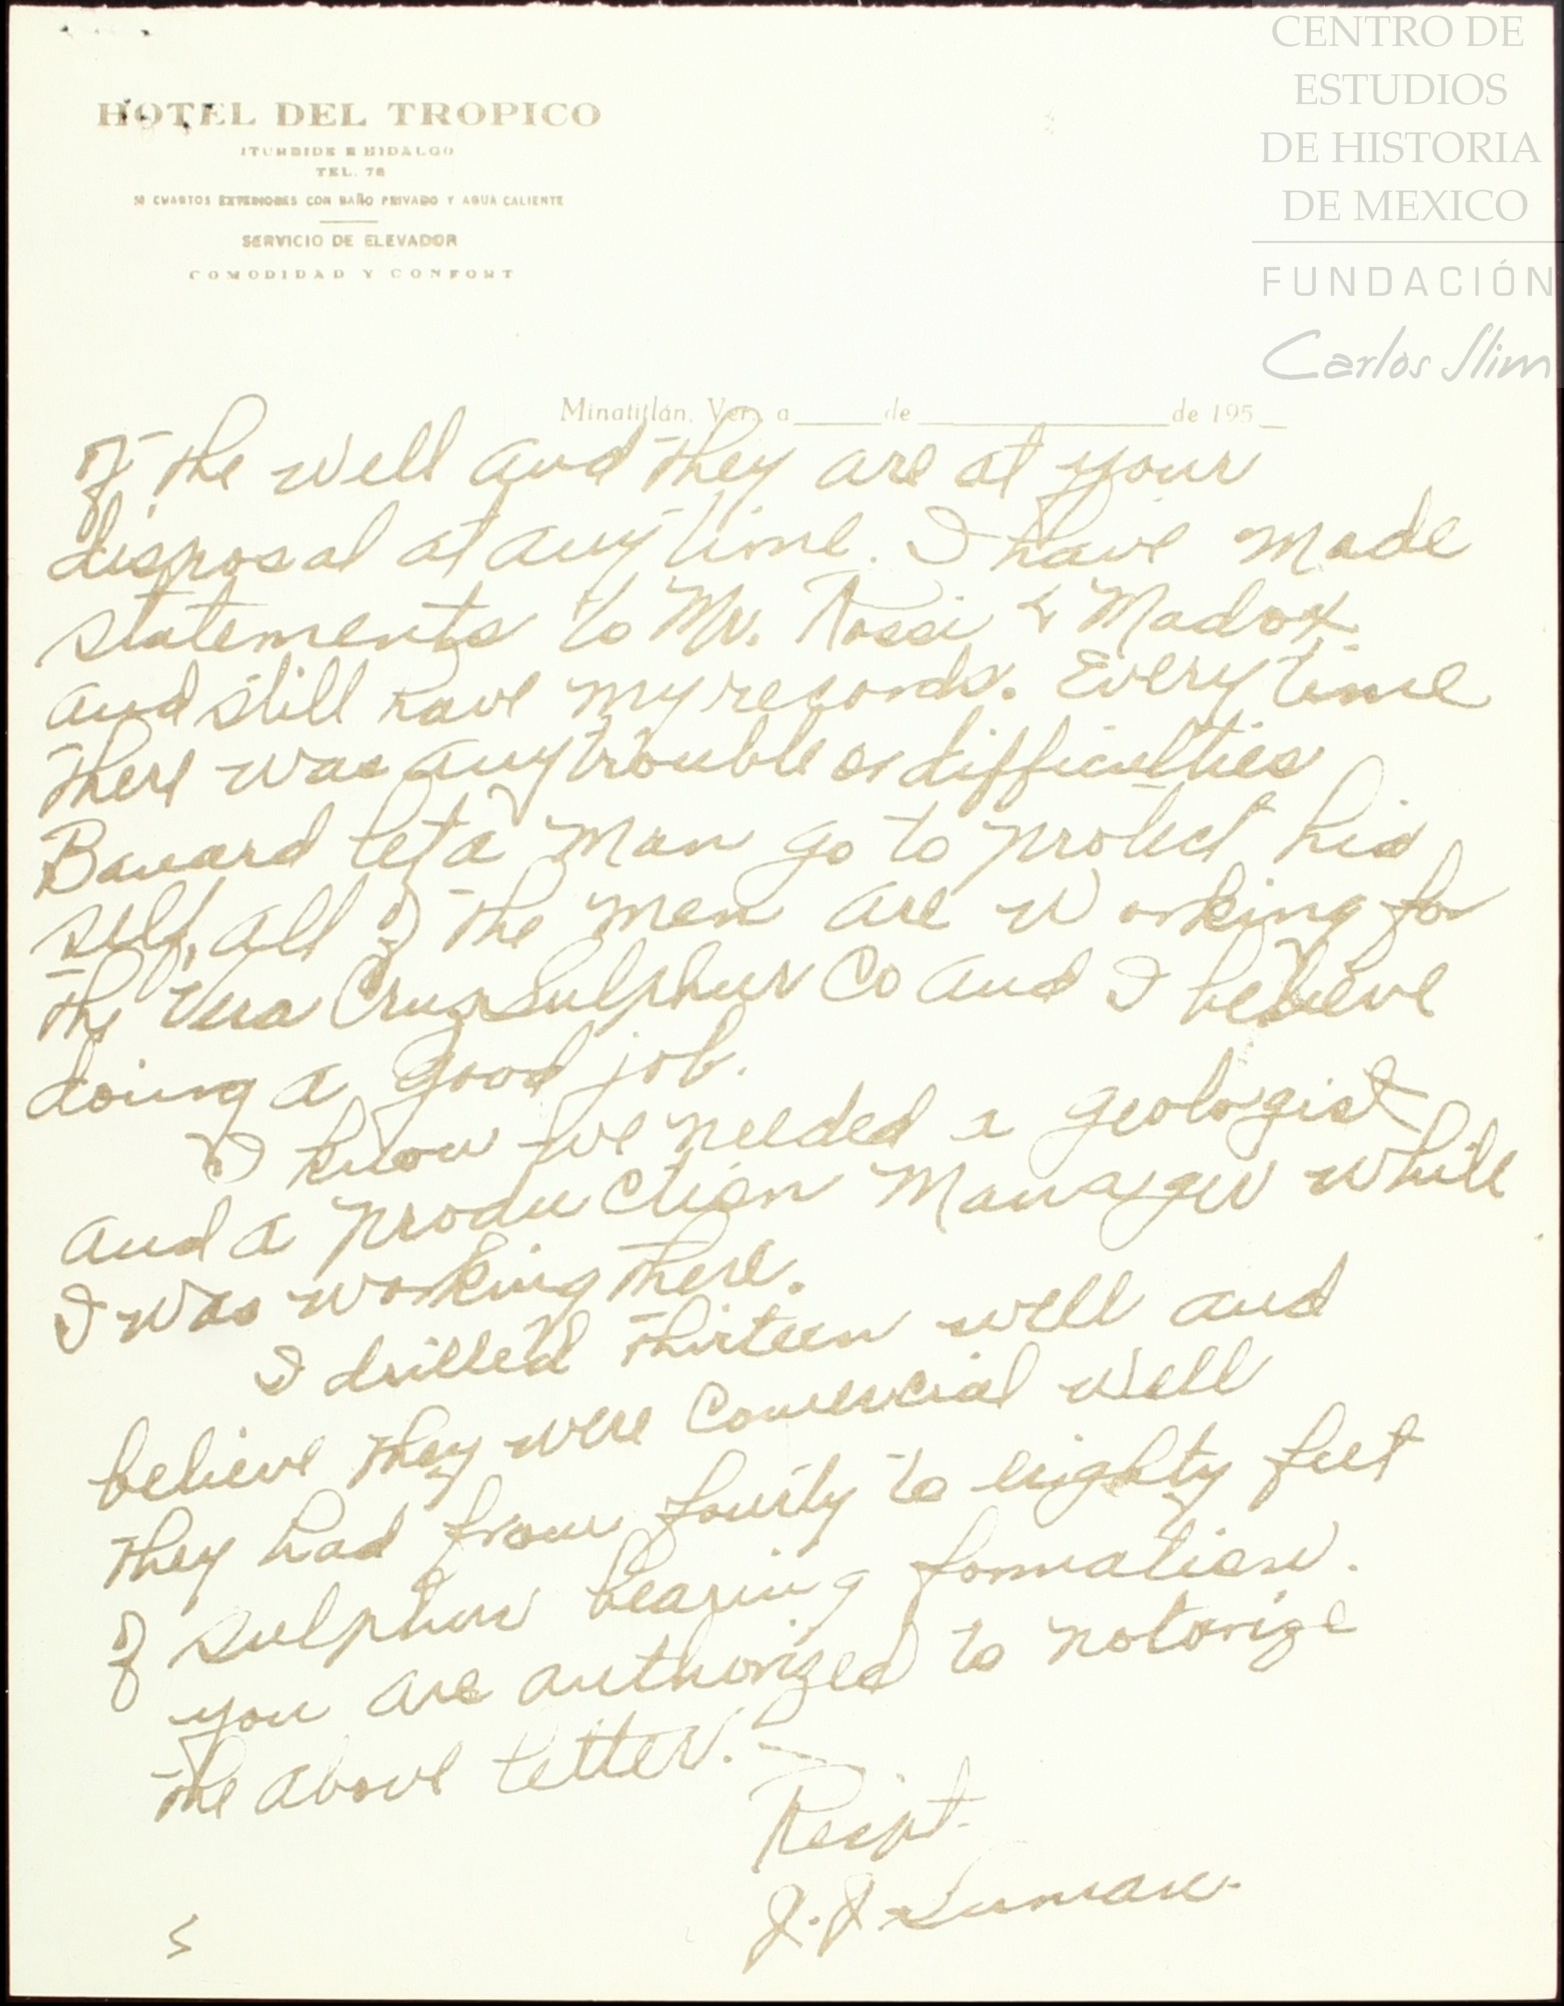 CENTRO DE
ESTUDIOS
DE HISTORIA
DE MEXICO
FUNDACIÓN
Carlos Slim
HOTEL DEL TROPICO
ITURBIDE E HIDALGO
TEL. 78
50 CUARTOS EXTERIORES CON BAÑO PRIVADO Y AGUA CALIENTE
SERVICIO DE ELEVADOR
COMODIDAD Y CONFORT
Minatitlán, Ver., a de de 195
of the well and they are at your
disposal at any time. I have made
statements to Mr. Rossi & Madox
and still have my records. Every time
there was any trouble or difficulties
Bavard let a man go to protect his
self, all of the men are working for
the Vera Cruz Sulphur Co and I believe
doing a good job.
I know we needed a geologist
and a production Manager while
I was working there.
I drilled thirteen well and
believe they were comercial well
they had from fourty to eighty feet
of sulphur bearing formation.
you are authorized to notorize
the above letter.
Recpt.
J. J.
5